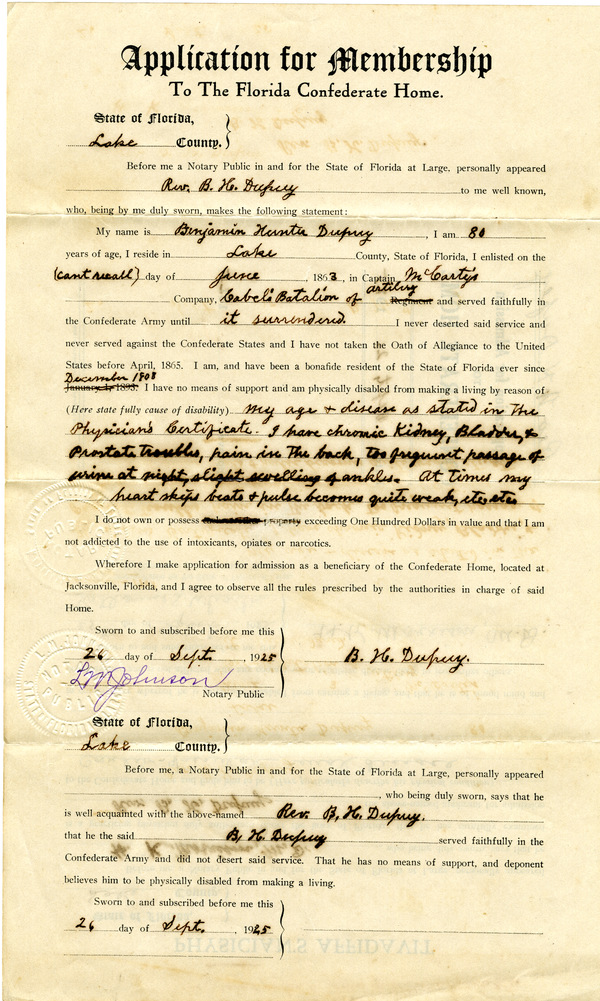 Application for Membership
To The Florida Confederate Home.
State of Florida,
Lake County.
Before me a Notary Public in and for the State of Florida at Large, personally appeared
Rev. B. H. Dupuy to me well known,
who, being by me duly sworn, makes the following statement:
My name is Benjamin Hunter Dupuy, I am 80
years of age, I reside in Lake County, State of Florida, I enlisted on the
(cant recall) day of June 1863, in Captain McCartys
Company, Cabel's Batalion of artilery Regiment and served faithfully in
the Confederate Army until it surrendered. I never deserted said service and
never served against the Confederate States and I have not taken the Oath of Allegiance to the United
States before April, 1865. I am, and have been a bonafide resident of the State of Florida ever since
December 1908
January 1, 1893. I have no means of support and am physically disabled from making a living by reason of
(Here state fully cause of disability) my age & disease as stated in the
Physician's Certificate. I have chronic Kidney, Bladder, &
Prostate troubles, pain in the back, too frequent passage of
urine at night, slight swelling of ankles. At times my
heart skips beats & pulse becomes quite weak, etc etc
I do not own or possess property exceeding One Hundred Dollars in value and that I am
not addicted to the use of intoxicants, opiates or narcotics.
Wherefore I make application for admission as a beneficiary of the Confederate Home, located at
Jacksonville, Florida, and I agree to observe all the rules prescribed by the authorities in charge of said
Home.
Sworn to and subscribed before me this
26 day of Sept. , 1925 B. H. Dupuy.
L M Johnson
Notary Public
State of Florida,
Lake County.
Before me, a Notary Public in and for the State of Florida at Large, personally appeared
, who being duly sworn, says that he
is well acquainted with the above-named Rev. B, H. Dupuy.
that he the said B, H. Dupuy served faithfully in the
Confederate Army and did not desert said service. That he has no means of support, and deponent
believes him to be physically disabled from making a living.
Sworn to and subscribed before me this
26 day of Sept. , 1925